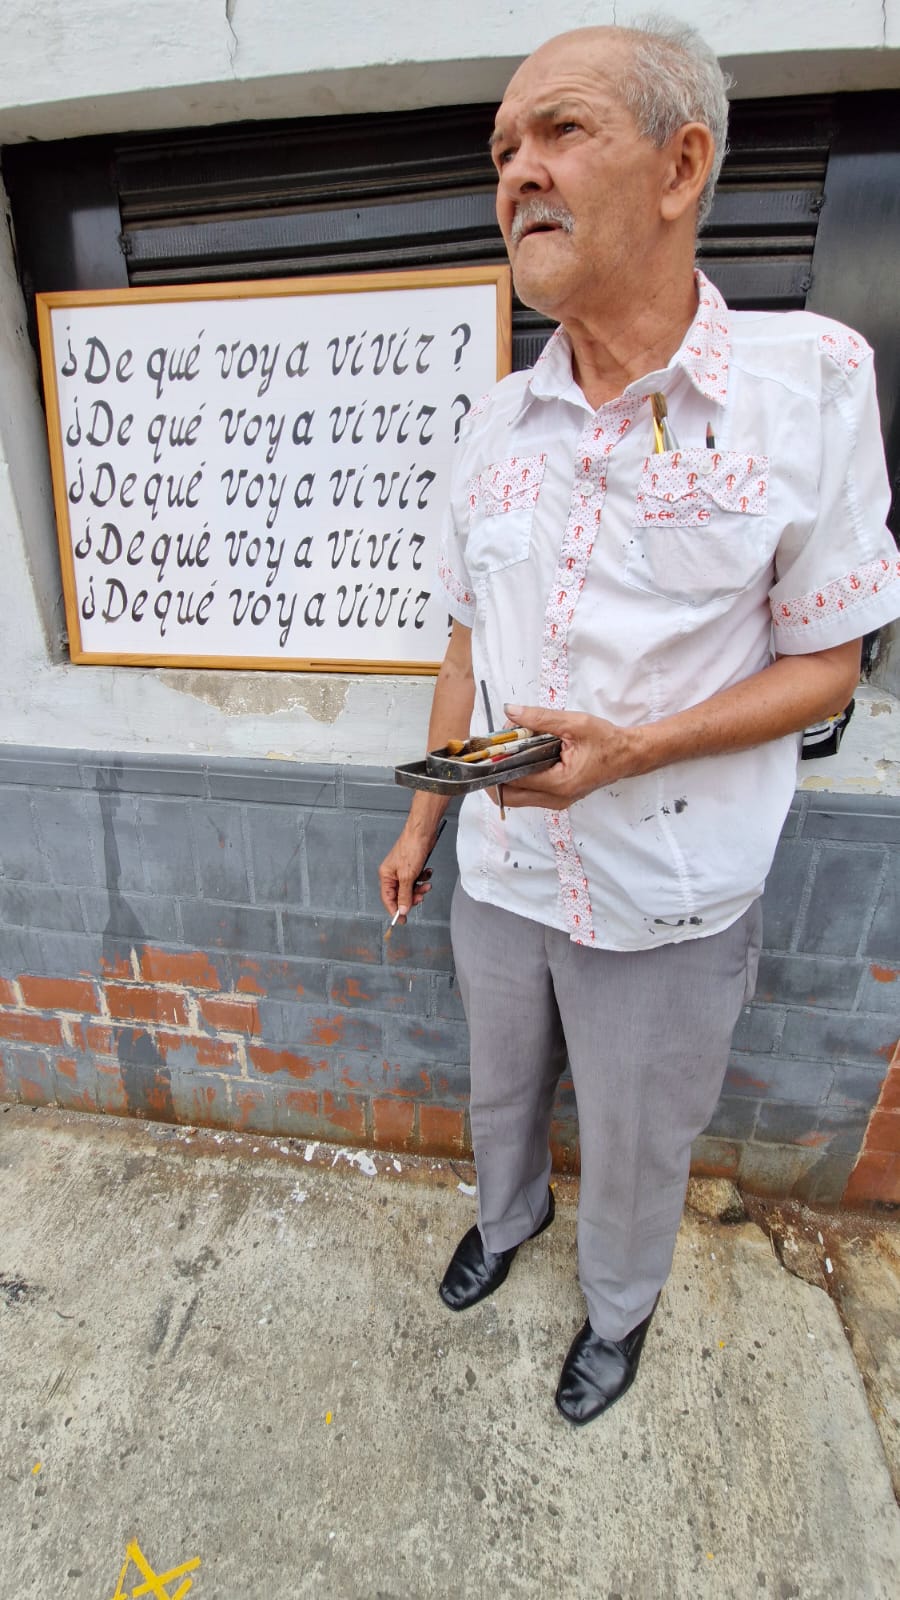 ¿De qué voy a vivir?
¿De qué voy a vivir?
¿De qué voy a vivir
¿De qué voy a vivir
¿De qué voy a vivir